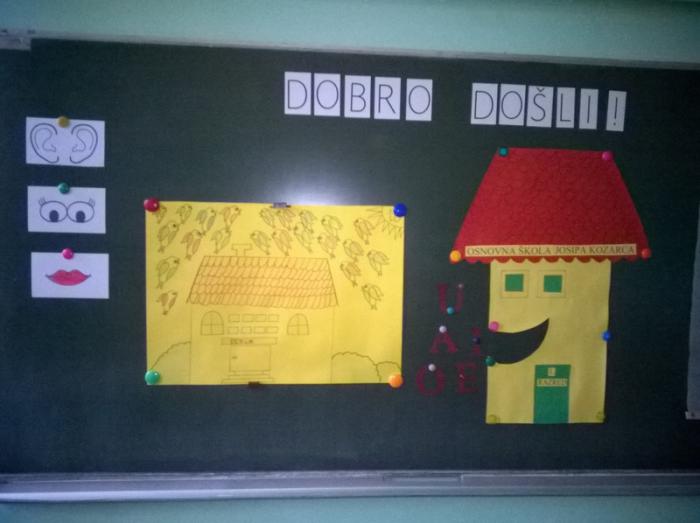 DOBRO DOŠLI!
OSNOVNA ŠKOLA JOSIPA KOZARCA
U
A I
O E
1.
RAZRED